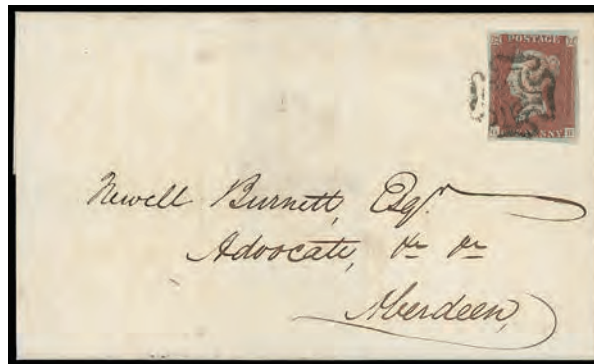 POSTAGE
Newell Burnett, Esqr.
Advocate, &c &c
Aberdeen,